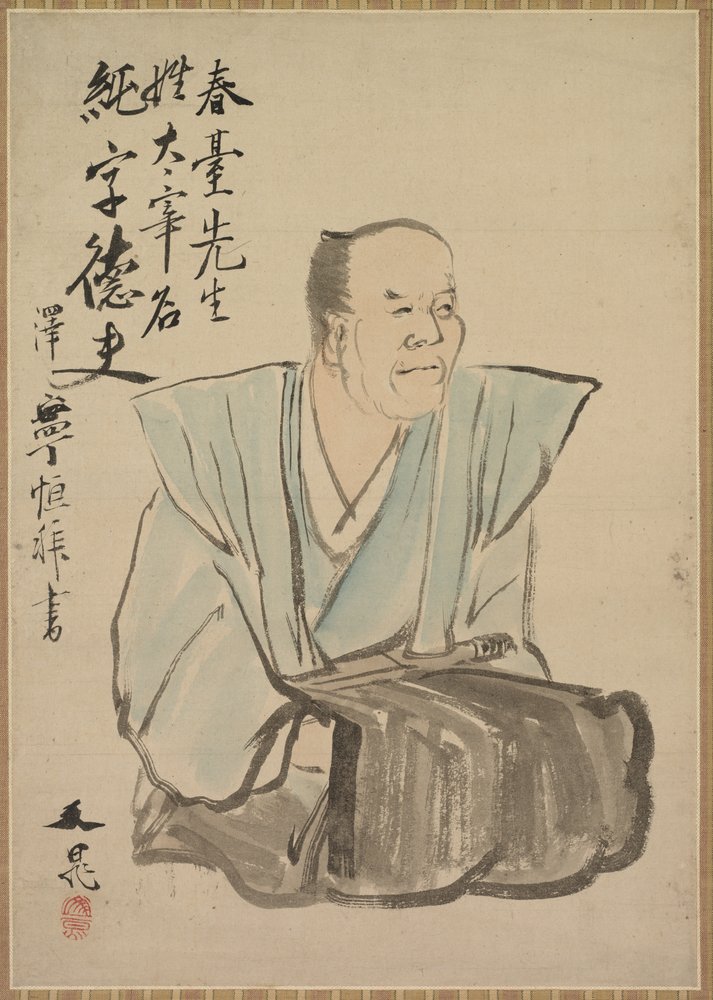 春臺先生
姓太宰名
純字德夫
澤
寧恒
書
文晁